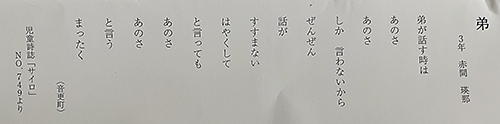 弟
3年 赤間 瑛那
弟が話す時は
あのさ
あのさ
しか 言わないから
ぜんぜん
話が
すすまない
はやくして
と言っても
あのさ
あのさ
と言う
まったく
(音更町)
児童詩誌「サイロ」
NO.749より